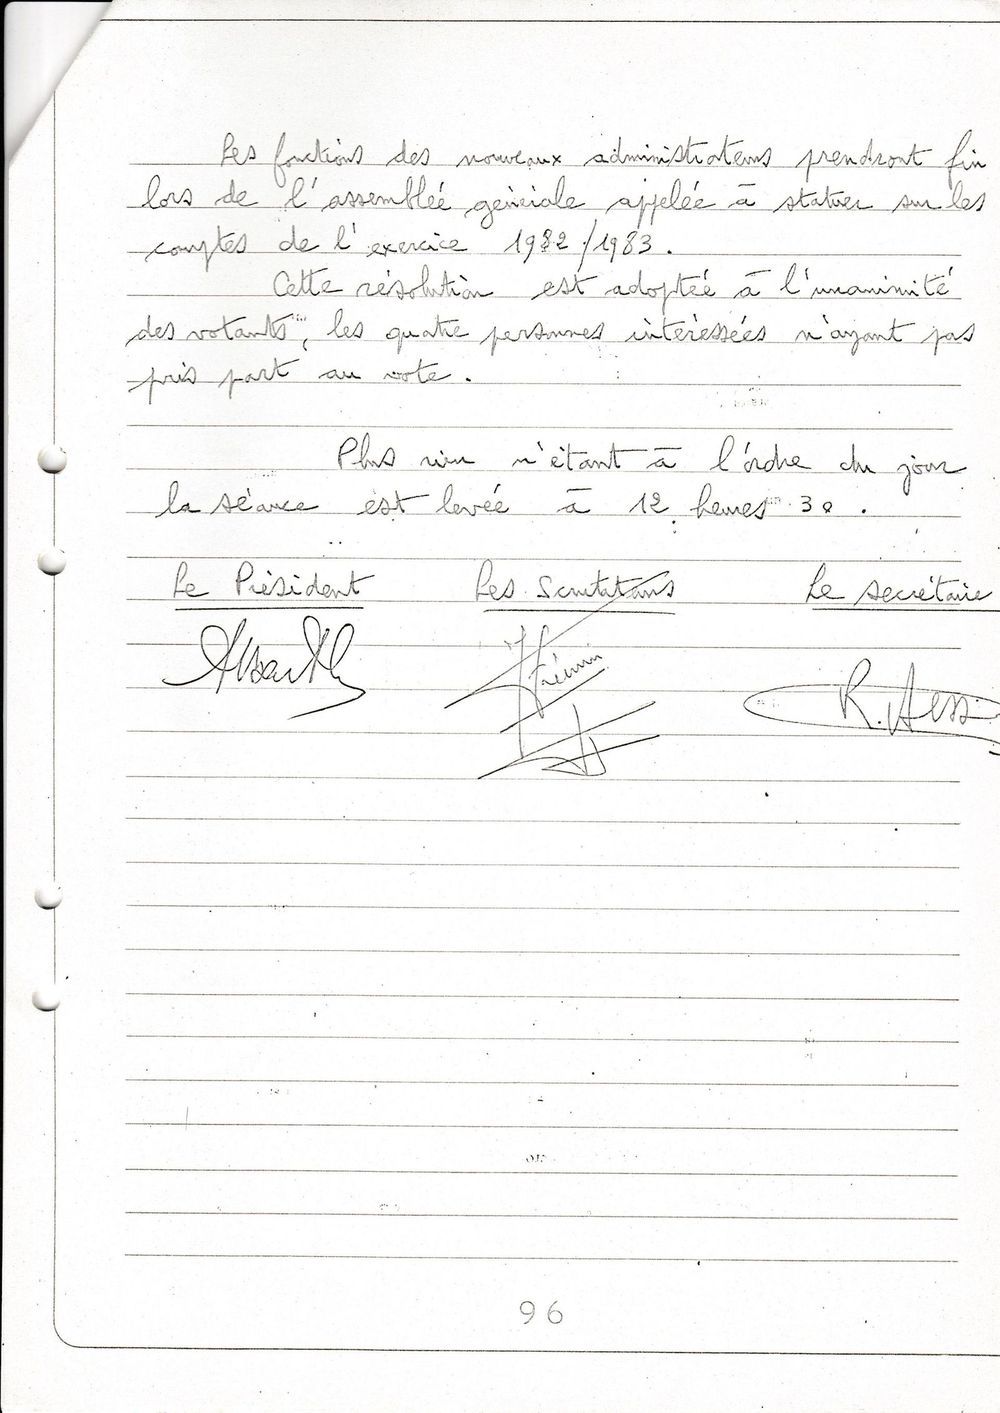 Les fonctions des nouveaux administrateurs prendront fin
lors de l'assemblée générale appelée à statuer sur les
comptes de l'exercice 1982/1983.
Cette résolution est adoptée à l'unanimité
des votants, les quatre personnes intéressées n'ayant pas
pris part au vote.
Plus rien n'étant à l'ordre du jour
la séance est levée à 12 heures 30.
Le Président Les Scrutateurs Le secrétaire
R. Hess
96